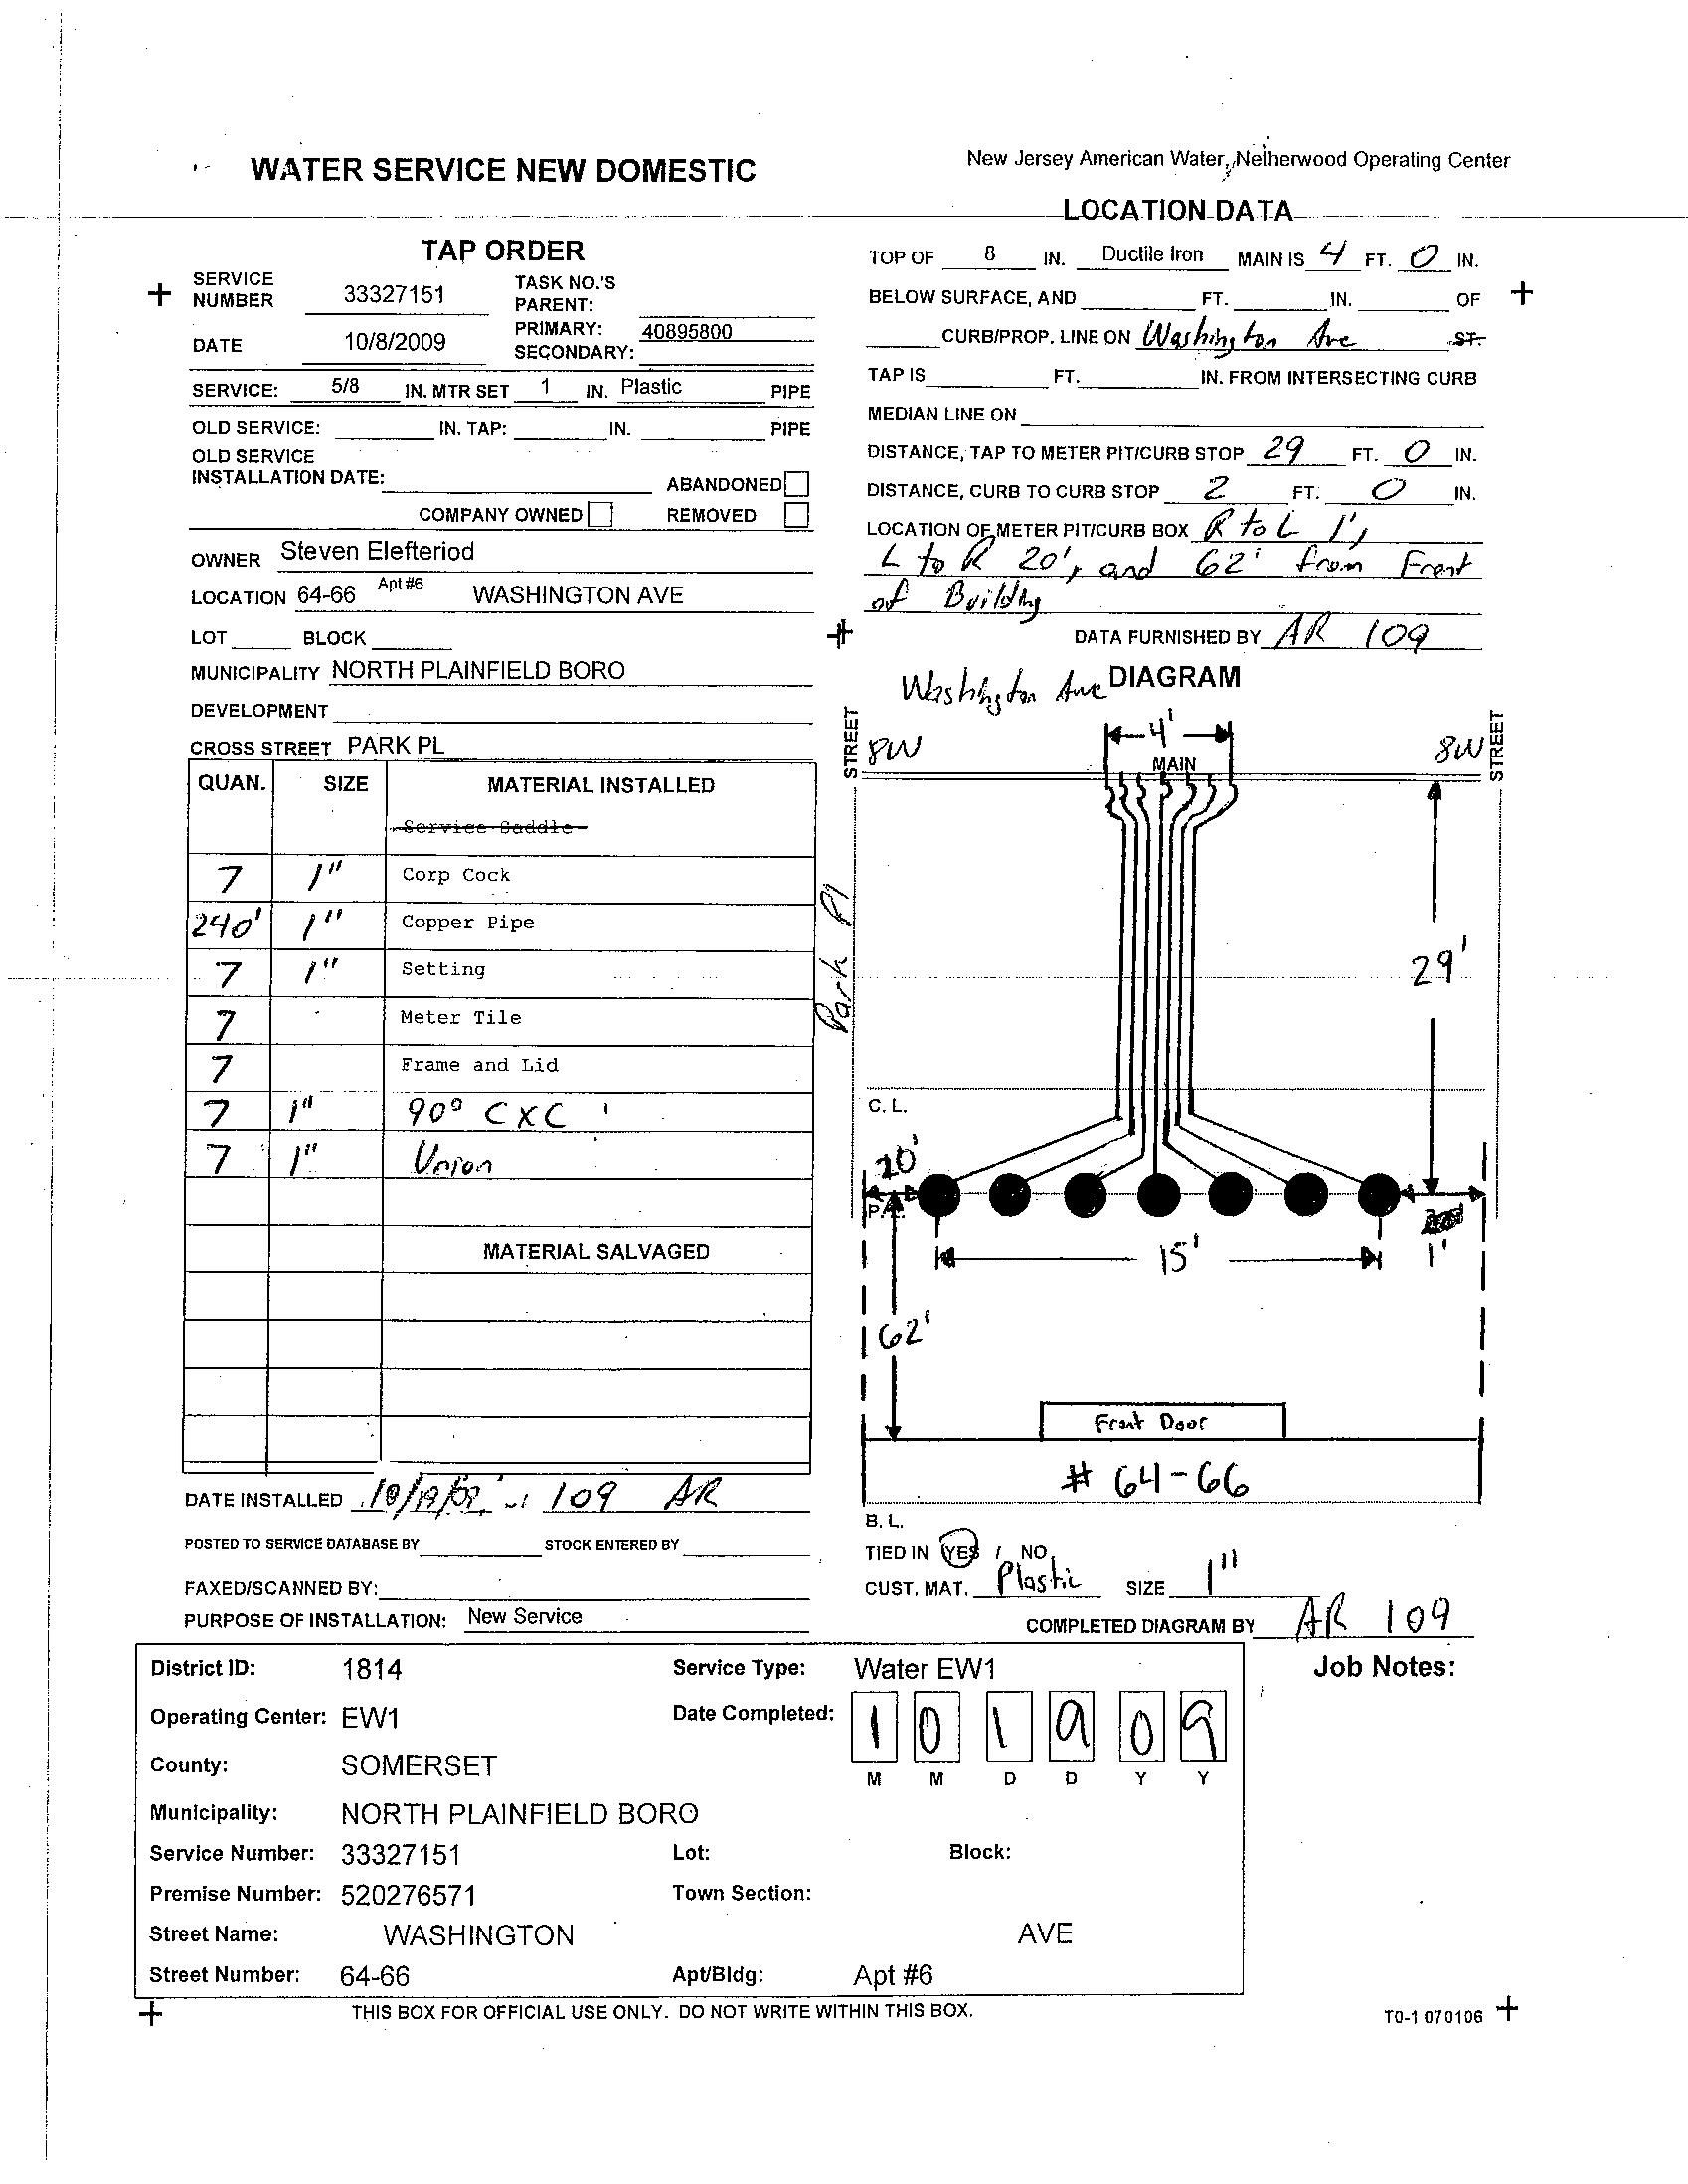 WATER SERVICE NEW DOMESTIC
New Jersey American Water, Netherwood Operating Center
LOCATION DATA
TAP ORDER
SERVICE NUMBER 33327151
TASK NO.'S PARENT:
DATE 10/8/2009
PRIMARY: 40895800
SECONDARY:
SERVICE: 5/8 IN. MTR SET 1 IN. Plastic PIPE
OLD SERVICE: IN. TAP: IN. PIPE
OLD SERVICE
INSTALLATION DATE: ABANDONED
COMPANY OWNED REMOVED
OWNER Steven Elefteriod
LOCATION 64-66 Apt #6 WASHINGTON AVE
LOT BLOCK
MUNICIPALITY NORTH PLAINFIELD BORO
DEVELOPMENT
CROSS STREET PARK PL
QUAN. SIZE MATERIAL INSTALLED
Service Saddle
7 1" Corp Cock
240' 1" Copper Pipe
7 1" Setting
7 Meter Tile
7 Frame and Lid
7 1" 90° C X C
7 1" Union
MATERIAL SALVAGED
DATE INSTALLED 10/19/09 109 AR
POSTED TO SERVICE DATABASE BY STOCK ENTERED BY
FAXED/SCANNED BY:
PURPOSE OF INSTALLATION: New Service
TOP OF 8 IN. Ductile Iron MAIN IS 4 FT. 0 IN.
BELOW SURFACE, AND FT. IN. OF
CURB/PROP. LINE ON Washington Ave ST.
TAP IS FT. IN. FROM INTERSECTING CURB
MEDIAN LINE ON
DISTANCE, TAP TO METER PIT/CURB STOP 29 FT. 0 IN.
DISTANCE, CURB TO CURB STOP 2 FT. 0 IN.
LOCATION OF METER PIT/CURB BOX R to L 1',
L to R 20', and 62' from Front
of Building
DATA FURNISHED BY AR 109
Washington Ave DIAGRAM
STREET 8W 4' 8W STREET
MAIN
Park Pl
29'
C.L.
20'
P.L.
15' 1'
62'
Front Door
# 64-66
B.L.
TIED IN YES / NO
CUST. MAT. Plastic SIZE 1"
COMPLETED DIAGRAM BY AR 109
District ID: 1814 Service Type: Water EW1
Job Notes:
Operating Center: EW1 Date Completed: 1 0 1 9 0 9
M M D D Y Y
County: SOMERSET
Municipality: NORTH PLAINFIELD BORO
Service Number: 33327151 Lot: Block:
Premise Number: 520276571 Town Section:
Street Name: WASHINGTON AVE
Street Number: 64-66 Apt/Bldg: Apt #6
THIS BOX FOR OFFICIAL USE ONLY. DO NOT WRITE WITHIN THIS BOX.
T0-1 070106